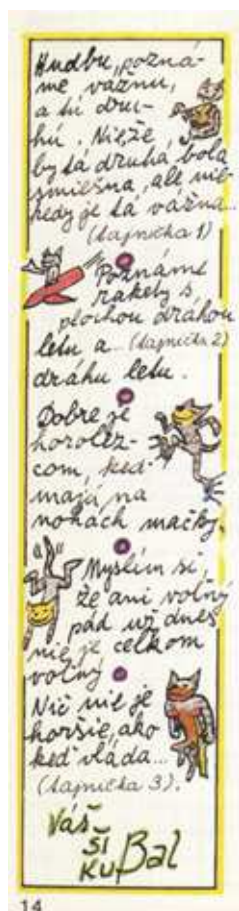 Hudbu, pozná-
me vážnu,
a tú dru-
hú. Nieže
by tá druhá bola
smiešna, ale nie-
kedy je tá vážna...
(tajnička 1)
Poznáme
rakety s
plochou dráhou
letu a... (tajnička 2)
dráhu letu.
Dobre je
horolez-
com, keď
majú na
nohách mačky.
Myslím si,
že ani voľný
pád už dnes
nie je celkom
voľný
Nič nie je
horšie, ako
keď vláda...
(tajnička 3).
Váš
ŠI
KU Bal
14